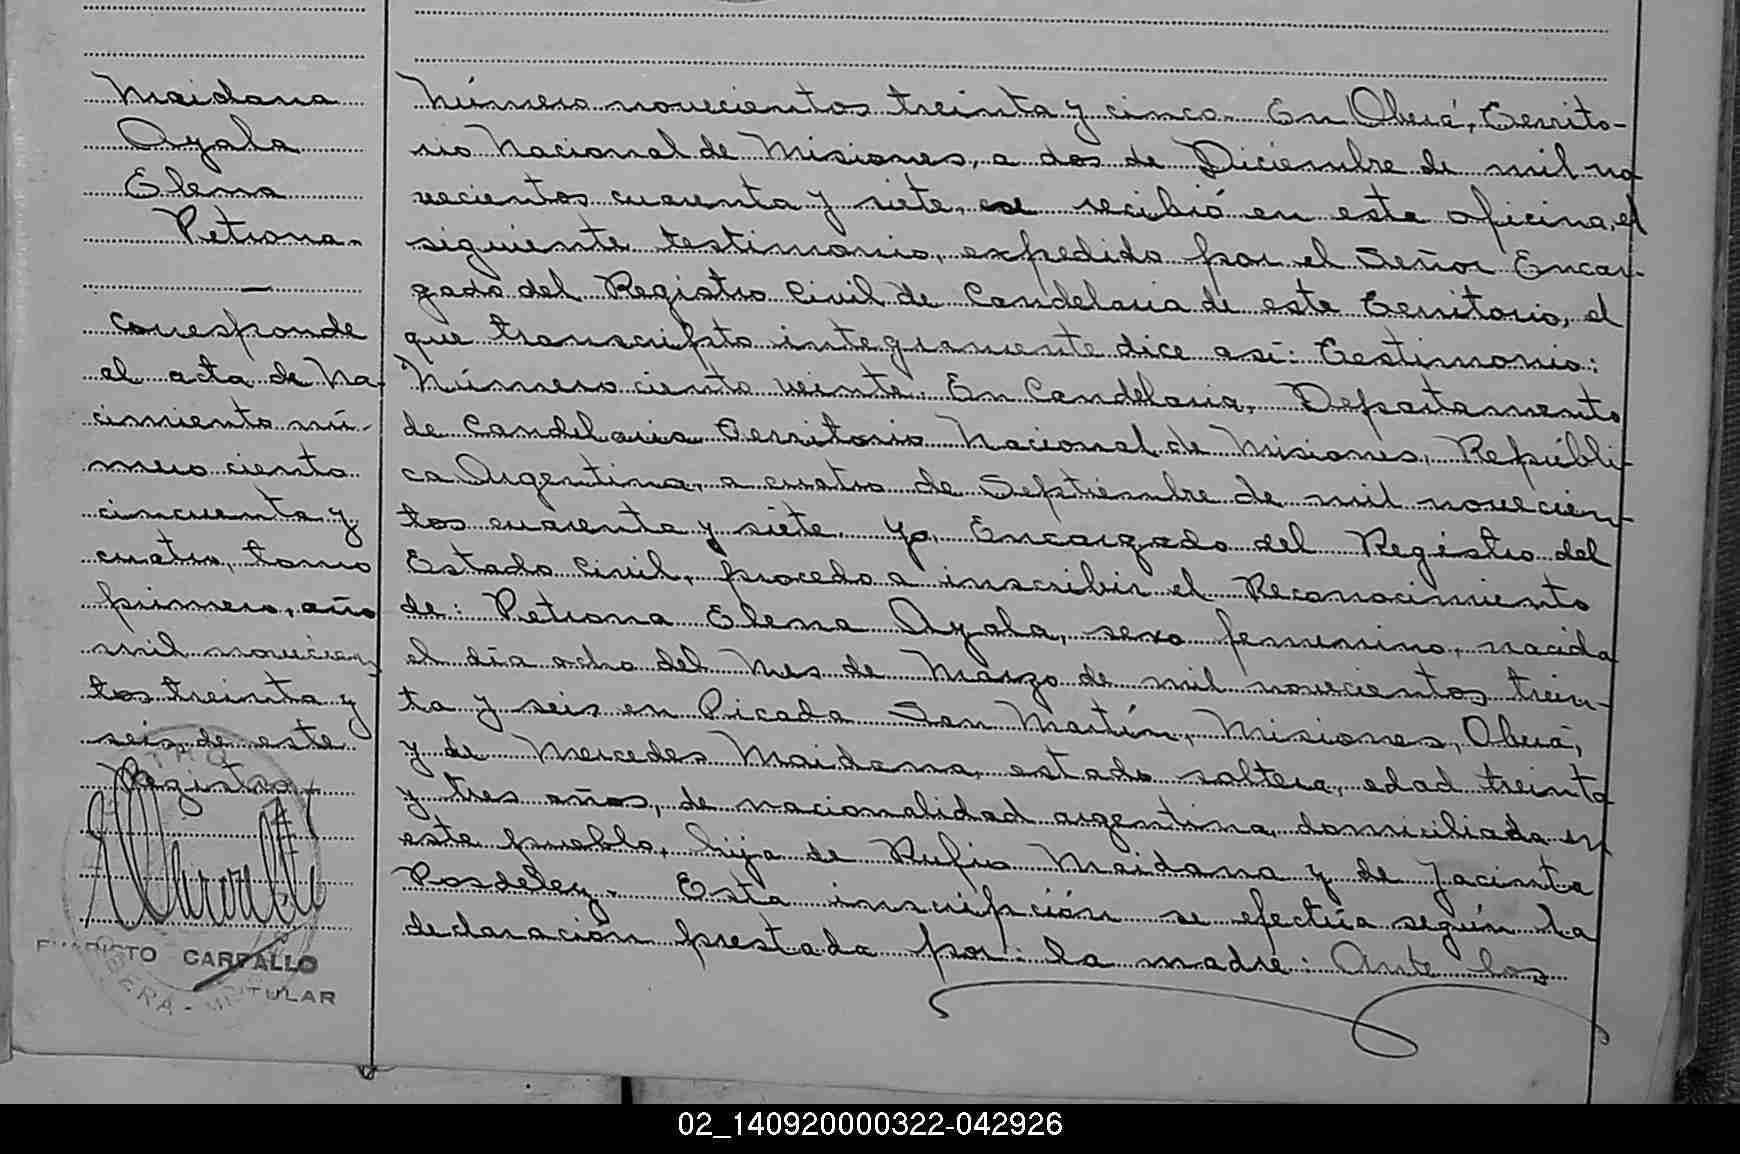 Maidana
Ayala
Elena
Petrona.
—
Corresponde
al acta de Na-
cimiento nú-
mero ciento
cincuenta y
cuatro, tomo
primero, año
mil novecien-
tos treinta y
seis, de este
Registro.
CARVALLO
TITULAR
OBERÁ -
Número novecientos treinta y cinco. En Oberá, Territo-
rio Nacional de Misiones, a dos de Diciembre de mil no
vecientos cuarenta y siete, se recibió en esta oficina, el
siguiente testimonio, expedido por el Señor Encar-
gado del Registro Civil de Candelaria de este Territorio, el
que transcripto integramente dice así: Testimonio:
Número ciento veinte. En Candelaria, Departamento
de Candelaria Territorio Nacional de Misiones, Repúbli-
ca Argentina, a cuatro de Septiembre de mil novecien-
tos cuarenta y siete. Yo, Encargado del Registro del
Estado Civil, procedo a inscribir el Reconocimiento
de: Petrona Elena Ayala, sexo femenino, nacida
el día ocho del mes de Marzo de mil novecientos trein-
ta y seis en Picada San Martín, Misiones, Oberá,
y de Mercedes Maidana, estado soltera, edad treinta
y tres años, de nacionalidad argentina, domiciliada en
este pueblo, hija de Rufio Maidana y de Jacinta
Posdeley. Esta inscripción se efectúa según la
declaración prestada por: la madre: Ante los
02_140920000322-042926